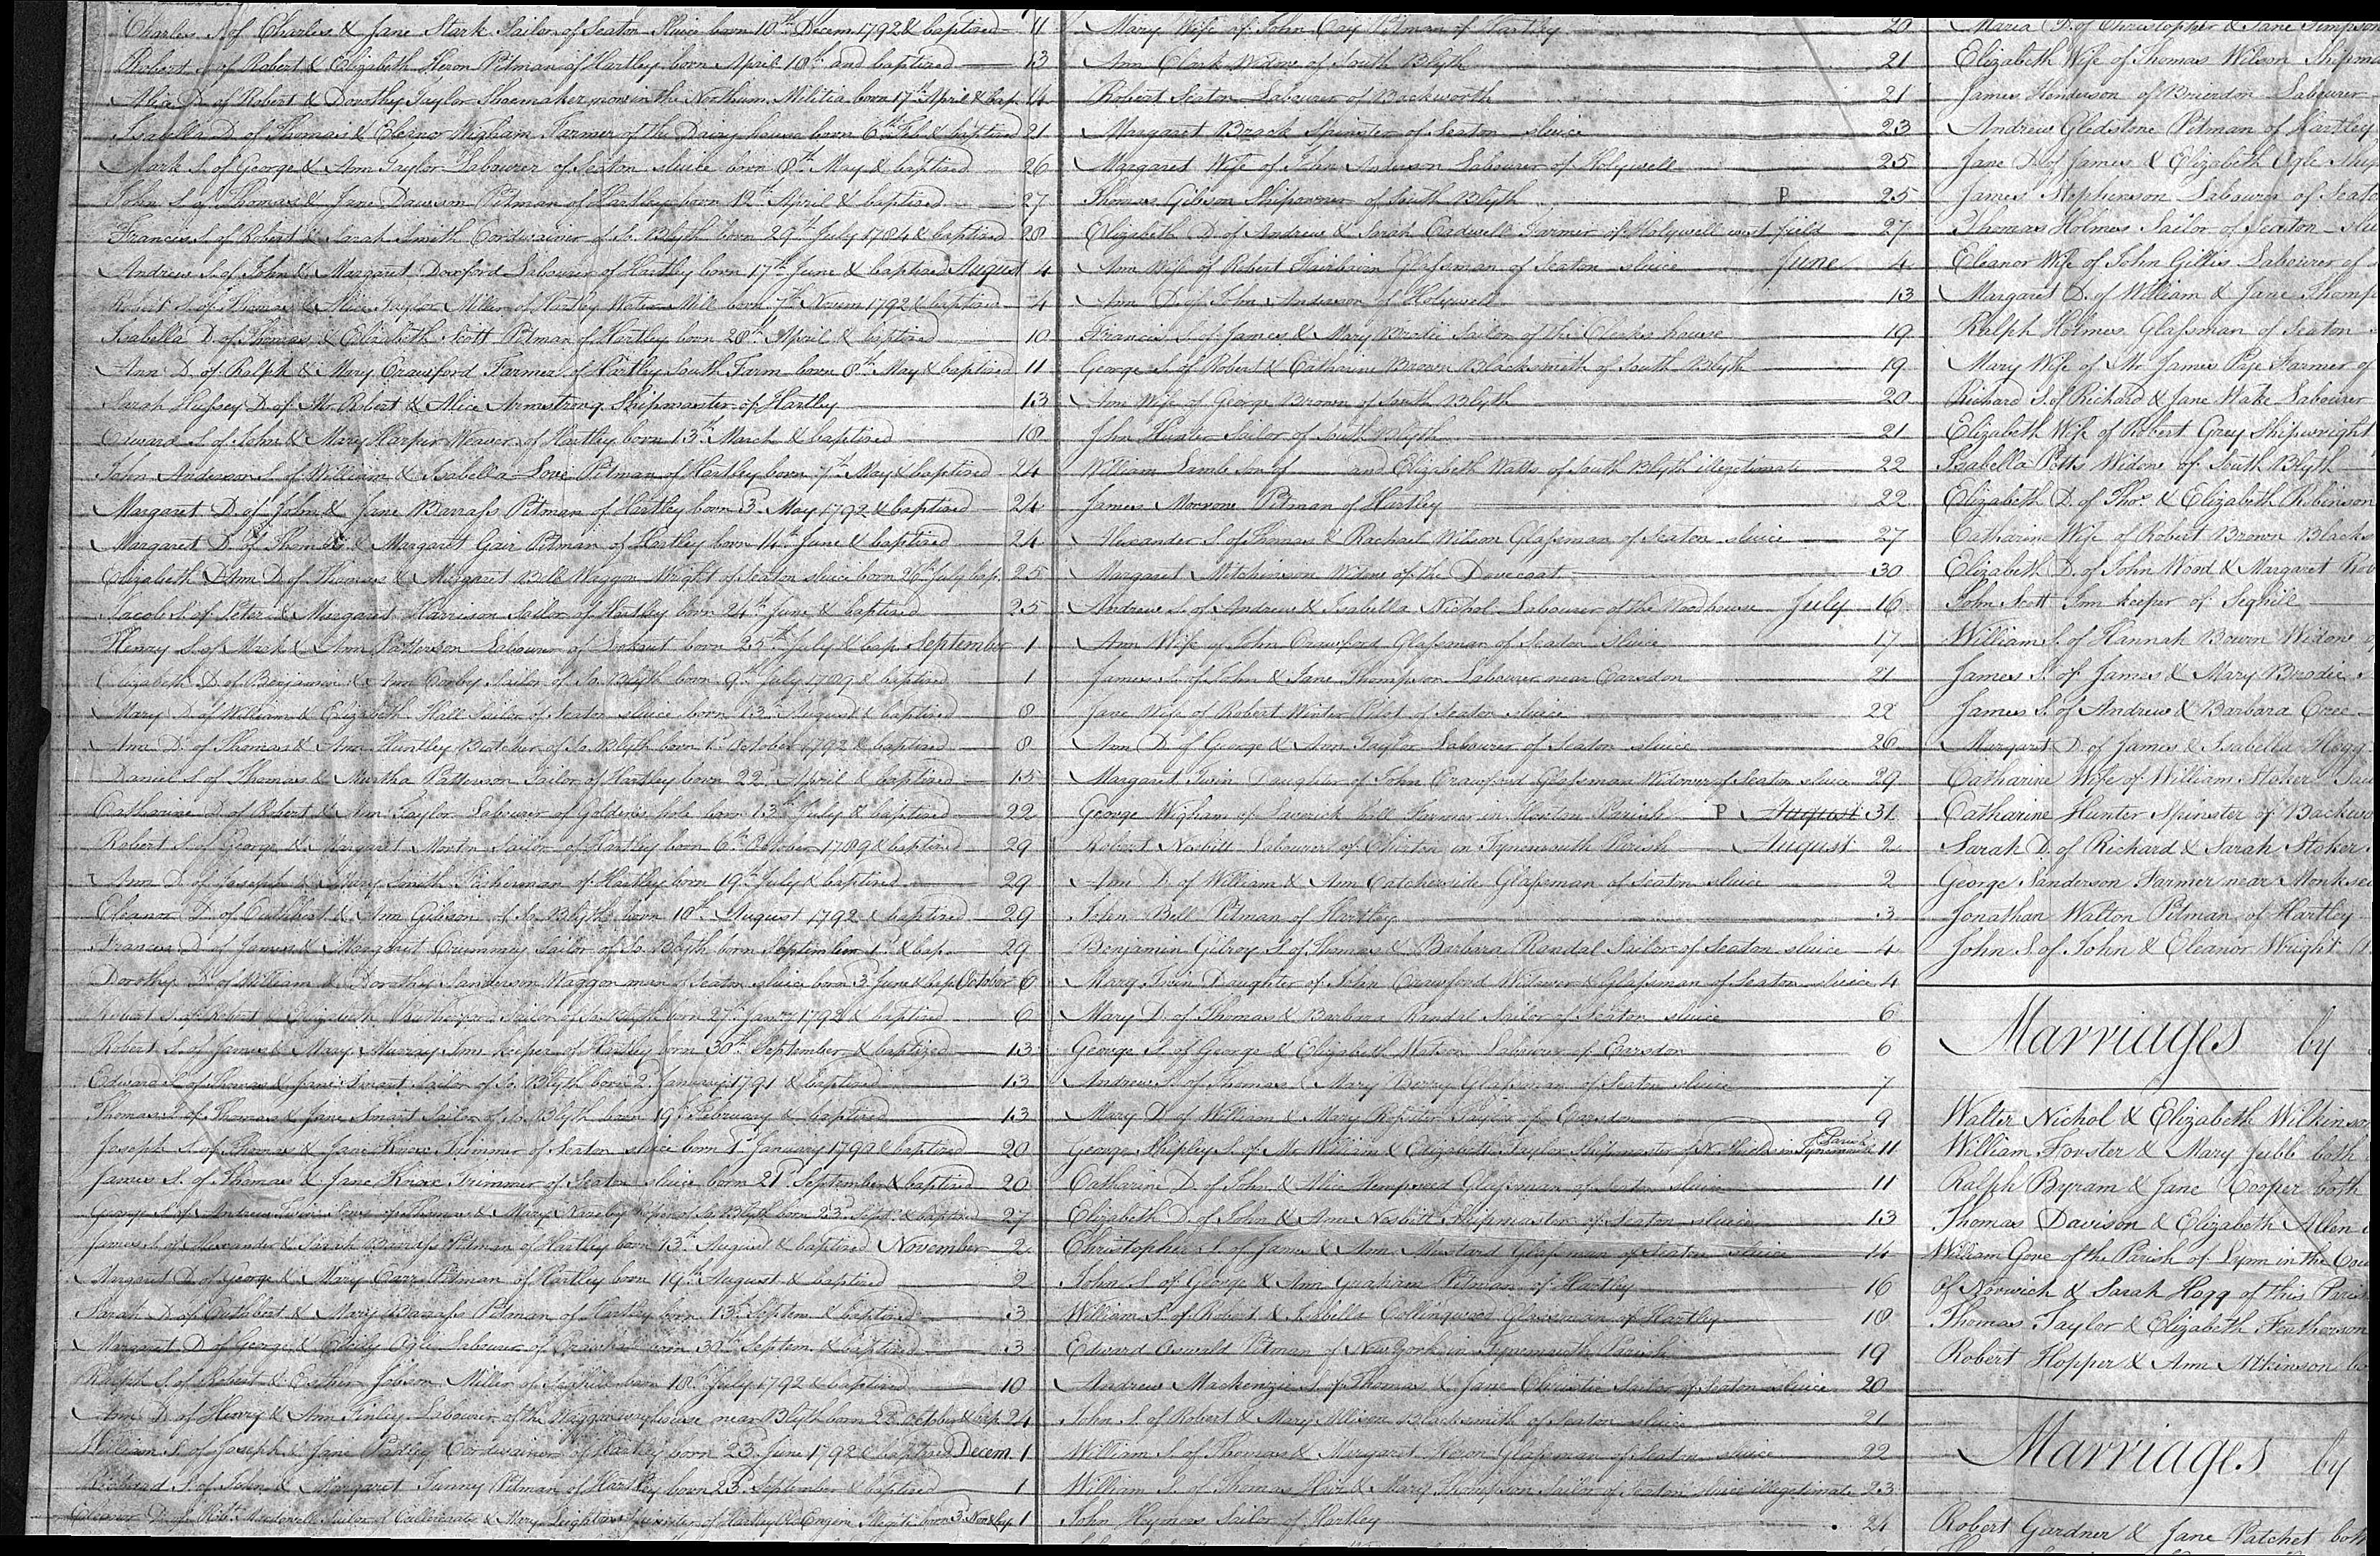 Charles S. of Charles & Jane Stark Sailor of Seaton Sluice born 10th Decem 1792 & baptized 11
Robert S. of Robert & Elizabeth Heron Pitman of Hartley born April 10th and baptized 13
Alice D. of Robert & Dorothy Taylor Shoemaker now in the Northum. Militia born 17th April & bap. 14
Isabella D. of Thomas & Eleanor Wigham Farmer of the Dairy house born 6th Feb & baptized 21
Mark S. of George & Ann Taylor Labourer of Seaton sluice born 8th May & baptized 26
John S. of Thomas & Jane Dawson Pitman of Hartley born 12th April & baptized 27
Francis S. of Robert & Sarah Smith Cordwainer of So. Blyth born 29th July 1784 & baptized 28
Andrew S. of John & Margaret Doxford Labourer of Hartley born 17th June & baptized August 4
Robert S. of Thomas & Alice Taylor Miller of Hartley Water Mill born 7th Novem 1792 & baptized 4
Isabella D. of Thomas & Elizabeth Scott Pitman of Hartley born 28th April & baptized 10
Ann D. of Ralph & Mary Crawford Farmer of Hartley South Farm born 8th May & baptized 11
Sarah Hussey D. of Mr. Robert & Alice Armstrong Shipmaster of Hartley 13
Edward S. of John & Mary Harper Weaver of Hartley born 13th March & baptized 18
John Anderson S. of William & Isabella Love Pitman of Hartley born 7th May & baptized 24
Margaret D. of John & Jane Barrass Pitman of Hartley born 3d May 1792 & baptized 24
Margaret D. of Thomas & Margaret Gair Pitman of Hartley born 14th June & baptized 24
Elizabeth Ann D. of Thomas & Margaret Bell Waggon Wright of Seaton sluice born 26th July bap. 25
Jacob S. of Peter & Margaret Harrison Sailor of Hartley born 24th June & baptized 25
Henry S. of Mark & Ann Patterson Labourer of born 25th July & bap. September 1
Elizabeth D. of Benjamin & Ann Sailor of So. Blyth born 9th July 1789 & baptized 1
Mary D. of William & Elizabeth Hall Sailor of Seaton sluice born 13th August & baptized 8
Ann D. of Thomas & Ann Huntley Butcher of So. Blyth born 1st October 1792 & baptized 8
Daniel S. of Thomas & Martha Patterson Sailor of Hartley born 22d April & baptized 15
Catharine D. of Robert & Ann Taylor Labourer of hole born 13th July & baptized 22
Robert S. of George & Margaret Sailor of Hartley born 6th October 1789 & baptized 29
Ann D. of Joseph & Mary Smith Fisherman of Hartley born 19th July & baptized 29
Eleanor D. of Cuthbert & Ann Gibson of So. Blyth born 10th August 1792 & baptized 29
Frances D. of James & Margaret Sailor of So. Blyth born September 1st & bap. 29
Dorothy D. of William & Dorothy Sanderson Waggon man of Seaton sluice born 3d June & bap. October 6
Robert S. of Robert & Elizabeth Sailor of So. Blyth born 27th Janry 1792 & baptized 6
Robert S. of James & Mary Murray Inn keeper of Hartley born 30th September & baptized 13
Edward S. of Thomas & Jane Smart Sailor of So. Blyth born 2d January 1791 & baptized 13
Thomas S. of Thomas & Jane Smart Sailor of So. Blyth born 19th February & baptized 13
Joseph S. of Thomas & Jane Knox Trimmer of Seaton sluice born 1st January 1790 & baptized 20
James S. of Thomas & Jane Knox Trimmer of Seaton sluice born 21st September & baptized 20
George & Andrew Twin Sons of Thomas & Mary of So. Blyth born 23d Sept. & baptized 27
James S. of Alexander & Sarah Barrass Pitman of Hartley born 13th August & baptized November 2
Margaret D. of George & Mary Carr Pitman of Hartley born 19th August & baptized 2
Sarah D. of Cuthbert & Mary Barrass Pitman of Hartley born 13th Septem. & baptized 3
Margaret D. of George & Ogle Labourer of born 30th Septem. & baptized 3
Ralph S. of Robert & Esther Jobson Miller of Seghill born 18th July 1792 & baptized 10
Ann D. of Henry & Ann Finley Labourer of the Waggonwayhouse near Blyth born 22d October & bap. 24
William S. of Joseph & Jane Cordwainer of Hartley born 23d June 1792 & baptized Decem. 1
Richard S. of John & Margaret Tunny Pitman of Hartley born 23d September & baptized 1
Eleanor D. of Robt. Sailor of & Mary Leighton Spinster of Hartley Old Engine Illegit. born 3d Nov & bap. 1
Mary Wife of John Cay Pitman of Hartley 20
Ann Clark Widow of South Blyth 21
Robert Seaton Labourer of Backworth 21
Margaret Brack Spinster of Seaton sluice 23
Margaret Wife of John Anderson Labourer of Holywell 25
Thomas Gibson Shipowner of South Blyth P 25
Elizabeth D. of Andrew & Sarah Cadwell Farmer of Holywell west field 27
Ann Wife of Robert Fairbairn Glassman of Seaton sluice June 4
Ann D. of John Anderson of Holywell 13
Francis S. of James & Mary Brodie Sailor of the house 19
George S. of Robert & Catharine Brown Blacksmith of South Blyth 19
Ann Wife of George Brown of South Blyth 20
John Hunter Sailor of South Blyth 21
William Lamb son of and Elizabeth Watts of South Blyth illegitimate 22
James Morrow Pitman of Hartley 22
Alexander S. of Thomas & Rachael Wilson Glassman of Seaton sluice 27
Margaret Mitchinson Widow of the Dovecoat 30
Andrew S. of Andrew & Isabella Nichol Labourer of the Woodhouse July 16
Ann Wife of John Crawford Glassman of Seaton Sluice 17
James S. of John & Jane Thompson Labourer near Earsdon 21
Jane Wife of Robert Winter Pilot of Seaton sluice 22
Ann D. of George & Ann Taylor Labourer of Seaton sluice 26
Margaret Twin Daughter of John Crawford Glassman Widower of Seaton sluice 29
George Wigham of hall Farmer in Horton Parish P August 31
Robert Nesbitt Labourer of Chirton in Tynemouth Parish August 2
Ann D. of William & Ann Catcheside Glassman of Seaton sluice 2
John Bell Pitman of Hartley 3
Benjamin Gilroy S. of Thomas & Barbara Randal Sailor of Seaton sluice 4
Mary Twin Daughter of John Crawford Widower & Glassman of Seaton sluice 4
Mary D. of Thomas & Barbara Randal Sailor of Seaton sluice 6
George S. of George & Elizabeth Watson Labourer of Earsdon 6
Andrew S. of Thomas & Mary Berry Glassman of Seaton sluice 7
Mary D. of William & Mary Taylor of Earsdon 9
George Shipley S. of Mr. William & Elizabeth Taylor Shipmaster of N. Shields in Tynemouth Parish 11
Catharine D. of John & Alice Hempseed Glassman of Seaton sluice 11
Elizabeth D. of John & Ann Nesbitt Shipmaster of Seaton sluice 13
Christopher S. of James & Ann Mustard Glassman of Seaton sluice 14
John S. of George & Ann Graham Pitman of Hartley 16
William S. of Robert & Isabella Collingwood Glassman of Hartley 18
Edward Oswald Pitman of New York in Tynemouth Parish 19
Andrew Mackenzie S. of Thomas & Jane Christie Sailor of Seaton sluice 20
John S. of Robert & Mary Allison Blacksmith of Seaton sluice 21
William S. of Thomas & Margaret Heron Glassman of Seaton sluice 22
William S. of Thomas Hair & Mary Thompson Sailor of Seaton sluice illegitimate 23
John Heymas Sailor of Hartley 24
Maria D. of Christopher & Jane Simpson
Elizabeth Wife of Thomas Wilson Shipma
James Henderson of Brierdon Labourer
Andrew Gledstone Pitman of Hartley
Jane D. of James & Elizabeth Ogle
James Stephenson Labourer of Seato
Thomas Holmes Sailor of Seaton slu
Eleanor Wife of John Gillis Labourer of
Margaret D. of William & Jane Thomp
Ralph Holmes Glassman of Seaton
Mary Wife of Mr. James Pape Farmer of
Richard S. of Richard & Jane Wake Labourer
Elizabeth Wife of Robert Grey Shipwright
Isabella Potts Widow of South Blyth
Elizabeth D. of Thos. & Elizabeth Robinson
Catharine Wife of Robert Brown Blacks
Elizabeth D. of John Wood & Margaret Rob
John Scott Inn keeper of Seghill
William S. of Hannah Bowen Widow of
James S. of James & Mary Brodie
James S. of Andrew & Barbara Cree
Margaret D. of James & Isabella Hogg
Catharine Wife of William Stoker
Catharine Hunter Spinster of Backwo
Sarah D. of Richard & Sarah Stoker
George Sanderson Farmer near Monksea
Jonathan Walton Pitman of Hartley
John S. of John & Eleanor Wright
Marriages by
Walter Nichol & Elizabeth Wilkinson
William Forster & Mary Jubb both
Ralph Byram & Jane Cooper both
Thomas Davison & Elizabeth Allen
William Gove of the Parish of Lynn in the
of Norwich & Sarah Hogg of this Parish
Thomas Taylor & Elizabeth Featherson
Robert Hopper & Ann Atkinson bo
Marriages by
Robert Gardner & Jane Patchet both